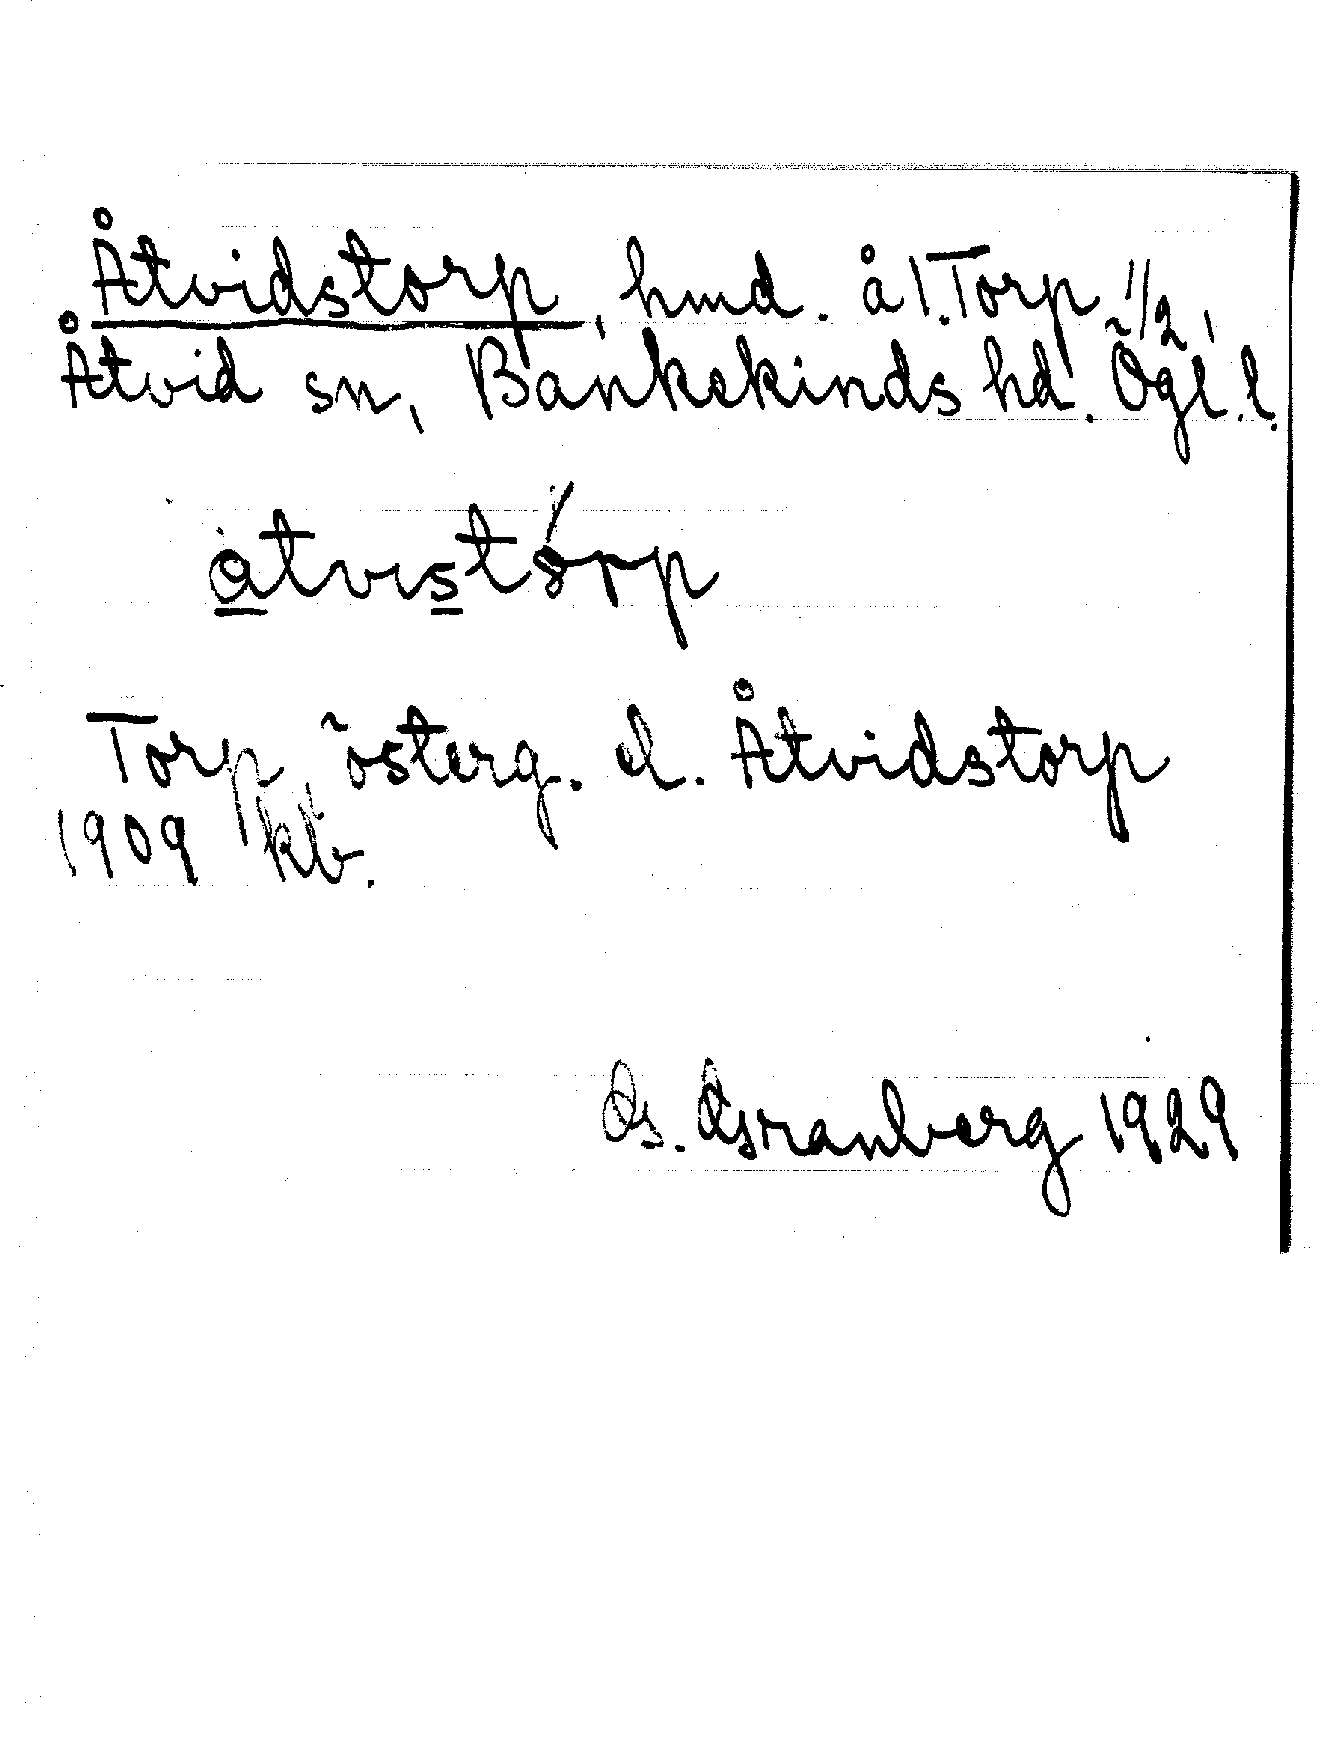 Åtvidstorp, hmd. å 1. Torp 1/2,
Åtvid sn, Bankekinds hd. Ögl. l.
åtvistórp
Torp, österg. el. Åtvidstorp
1909 kb.
G. Granberg 1929